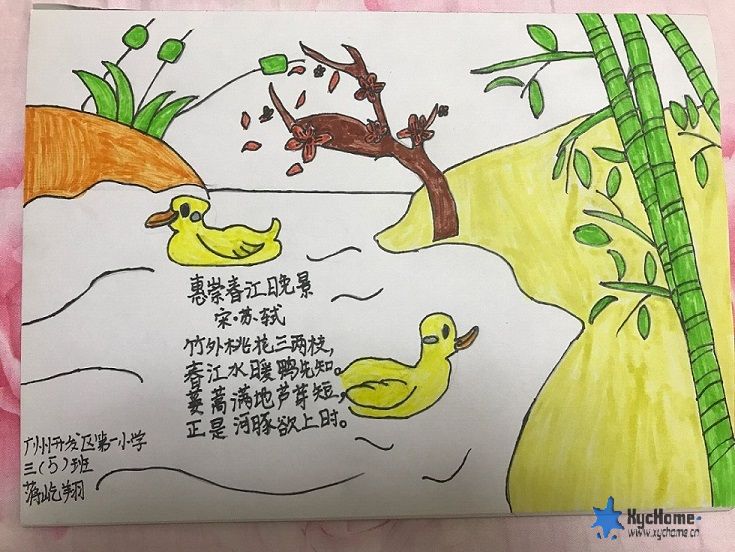 惠崇春江晚景
宋·苏轼
竹外桃花三两枝，
春江水暖鸭先知。
蒌蒿满地芦芽短，
正是河豚欲上时。
广州开发区第一小学
三(5)班
蒋屹翔
XycHome
www.xychome.cn